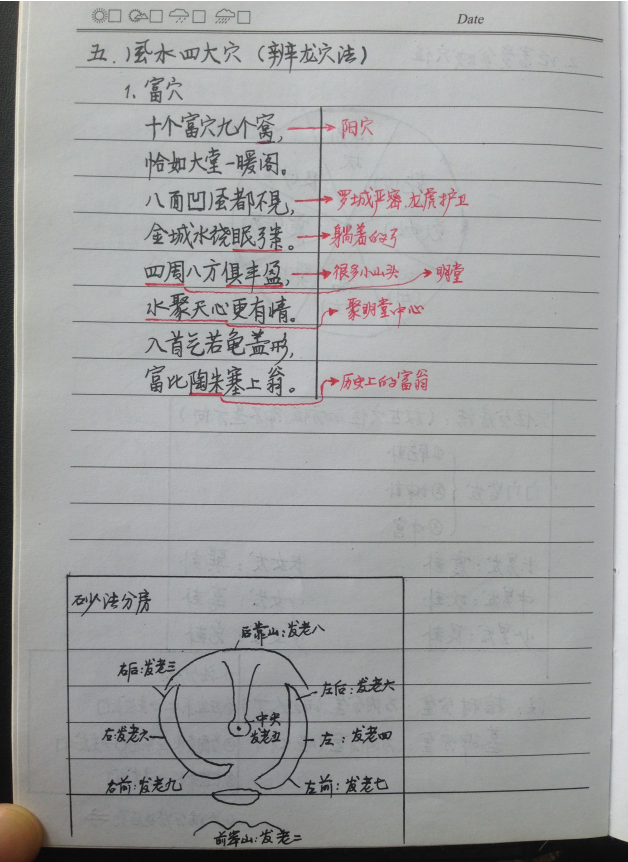 Date
五.风水四大穴（辨龙穴法）
1.富穴
十个富穴九个窝, → 阳穴
恰如大堂一暖阁。
八面凹风都不见, → 罗城严密,龙虎护卫
金城水绕眠弓案。 → 躺着的弓
四周八方俱丰盈, → 很多小山头 → 明堂
水聚天心更有情。 → 聚明堂中心
入首气若龟盖形,
富比陶朱塞上翁。 → 历史上的富翁
砂法分房
后靠山:发老八
右后:发老三
左后:发老六
中央
发老五
右:发老六
左:发老四
右前:发老九
左前:发老七
前岸山:发老二